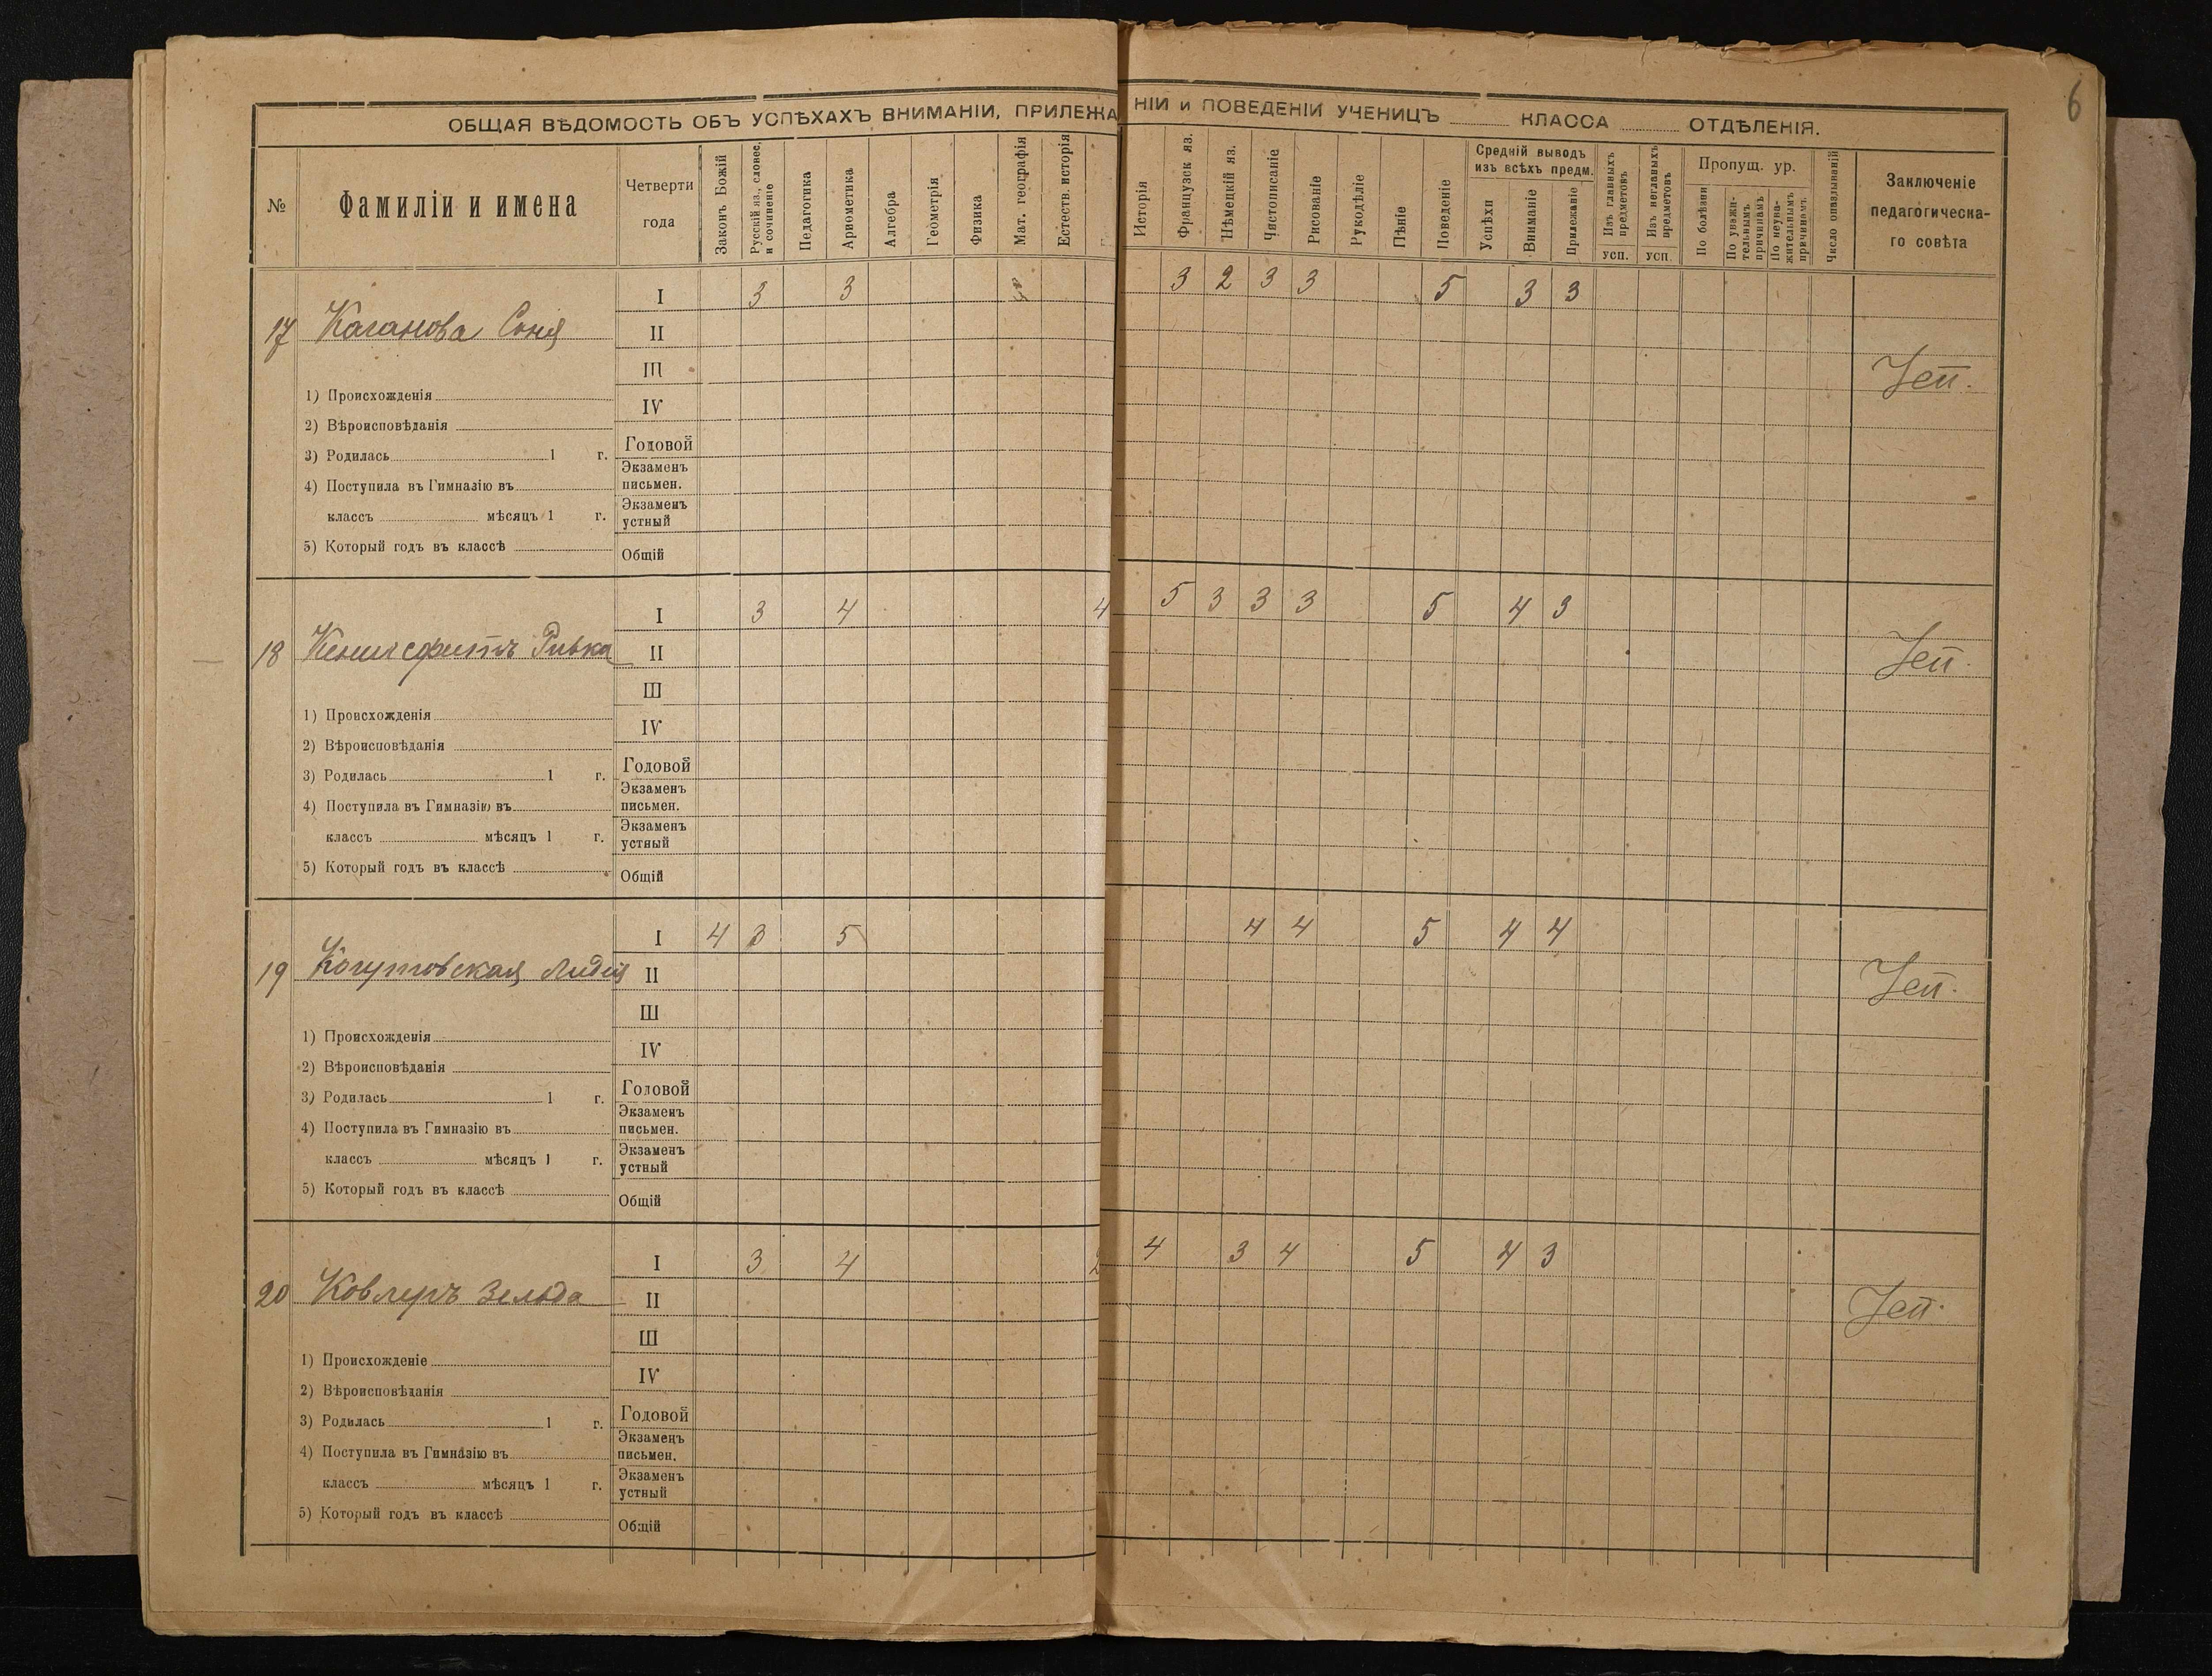 6
ОБЩАЯ ВѢДОМОСТЬ ОБЪ УСПѢХАХЪ ВНИМАНІИ, ПРИЛЕЖАНІИ и ПОВЕДЕНІИ УЧЕНИЦЪ КЛАССА ОТДѢЛЕНІЯ.
№
Фамиліи и имена
Четверти года
Законъ Божій
Русскій яз., словес. и сочиненіе
Педагогика
Ариѳметика
Алгебра
Геометрія
Физика
Мат. географія
Естеств. исторія
Исторія
Французск яз.
Нѣмецкій яз.
Чистописаніе
Рисованіе
Рукодѣліе
Пѣніе
Поведеніе
Средній выводъ изъ всѣхъ предм.
Успѣхи
Вниманіе
Прилежаніе
Изъ главныхъ предметовъ
усп.
Изъ неглавныхъ предметовъ
усп.
Пропущ. ур.
По болѣзни
По уважительнымъ причинамъ
По неуважительнымъ причинамъ
Число опаздываній
Заключеніе педагогическаго совѣта
17 Каганова Соня
I 3 3 3 2 3 3 5 3 3
II
III
Усп.
1) Происхожденія
IV
2) Вѣроисповѣданія
Годовой
3) Родилась 1 г.
Экзаменъ письмен.
4) Поступила въ Гимназію въ
Экзаменъ устный
классъ мѣсяцъ 1 г.
5) Который годъ въ классѣ
Общій
I 3 4 4 5 3 3 3 5 4 3
18 Ривка
II
Усп.
III
1) Происхожденія
IV
2) Вѣроисповѣданія
Годовой
3) Родилась 1 г.
Экзаменъ письмен.
4) Поступила въ Гимназію въ
Экзаменъ устный
классъ мѣсяцъ 1 г.
5) Который годъ въ классѣ
Общій
I 4 3 5 4 4 5 4 4
19 Когутовская Лидія
II
Усп.
III
1) Происхожденія
IV
2) Вѣроисповѣданія
Годовой
3) Родилась 1 г.
Экзаменъ письмен.
4) Поступила въ Гимназію въ
Экзаменъ устный
классъ мѣсяцъ 1 г.
5) Который годъ въ классѣ
Общій
I 3 4 4 3 4 5 4 3
20 Ковлеръ Зельда
II
Усп.
III
1) Происхожденіе
IV
2) Вѣроисповѣданія
Годовой
3) Родилась 1 г.
Экзаменъ письмен.
4) Поступила въ Гимназію въ
Экзаменъ устный
классъ мѣсяцъ 1 г.
5) Который годъ въ классѣ
Общій